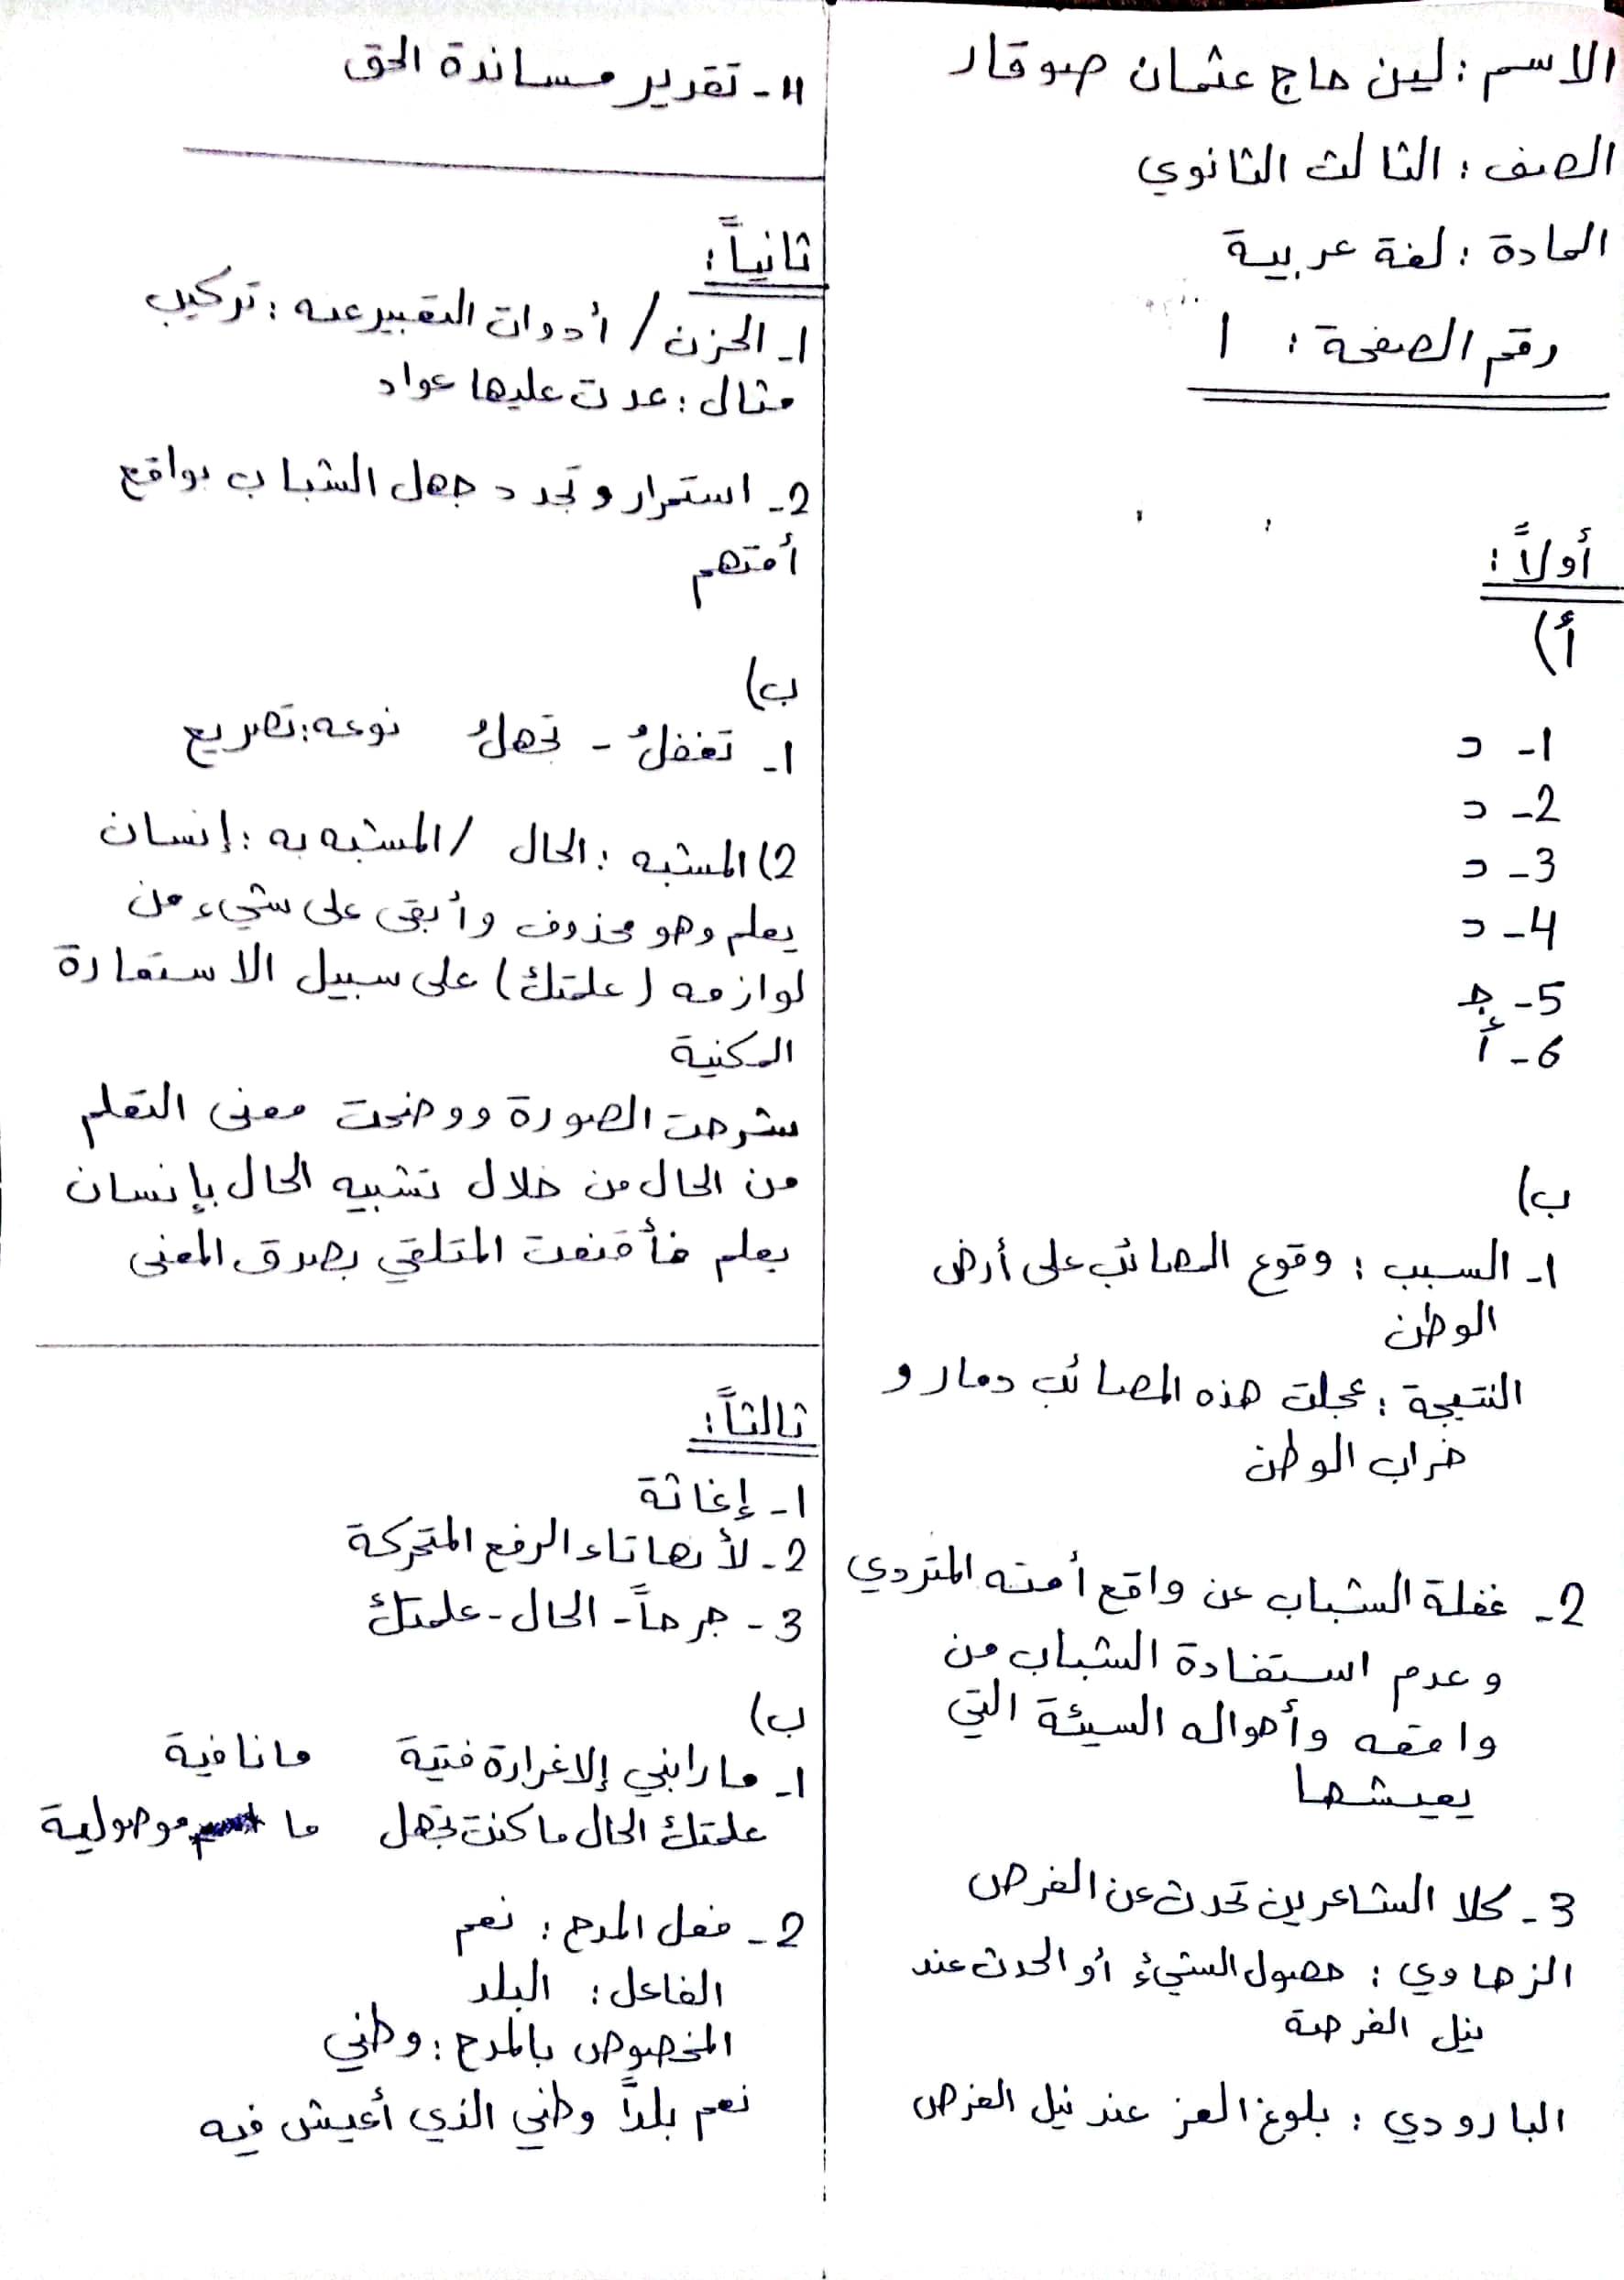 الاسم : لين حاج عثمان صوقار
الصف : الثالث الثانوي
المادة : لغة عربية
رقم الصفحة : 1
أولاً :
أ)
1- د
2- د
3- د
4- د
5- ج
6- أ
ب)
1- السبب : وقوع المصائب على أرض
الوطن
النتيجة : عجلت هذه المصائب دمار و
خراب الوطن
2- غفلة الشباب عن واقع أمته المتردي
وعدم استفادة الشباب من
واقعه وأحواله السيئة التي
يعيشها
3- كلا الشاعرين تحدث عن الفرص
الزهاوي : حصول الشيء أو الحدث عند
نيل الفرصة
البارودي : بلوغ العز عند نيل الفرص
4- تقدير مساندة الحق
ثانياً :
1- الحزن / أدوات التعبير عنه : تركيب
مثال : عدت عليها عواد
2- استمرار وتجدد جهل الشباب بواقع
أمتهم
ب)
1- تغفلُ - تجهلُ نوعه : تصريع
2) المشبه : الحال / المشبه به : إنسان
يعلم وهو محذوف وأبقى على شيء من
لوازمه (علمتك) على سبيل الاستعارة
المكنية
شرحت الصورة ووضحت معنى التعلم
من الحال من خلال تشبيه الحال بإنسان
يعلم فأقنعت المتلقي بصدق المعنى
ثالثاً :
1- إغاثة
2- لأنها تاء الرفع المتحركة
3- جرحاً - الحال - علمتك
ب)
1- ما رابني إلا غرارة فتية ما نافية
علمتك الحال ما كنت تجهل ما موصولية
2- فعل المدح : نعم
الفاعل : البلد
المخصوص بالمدح : وطني
نعم بلداً وطني الذي أعيش فيه